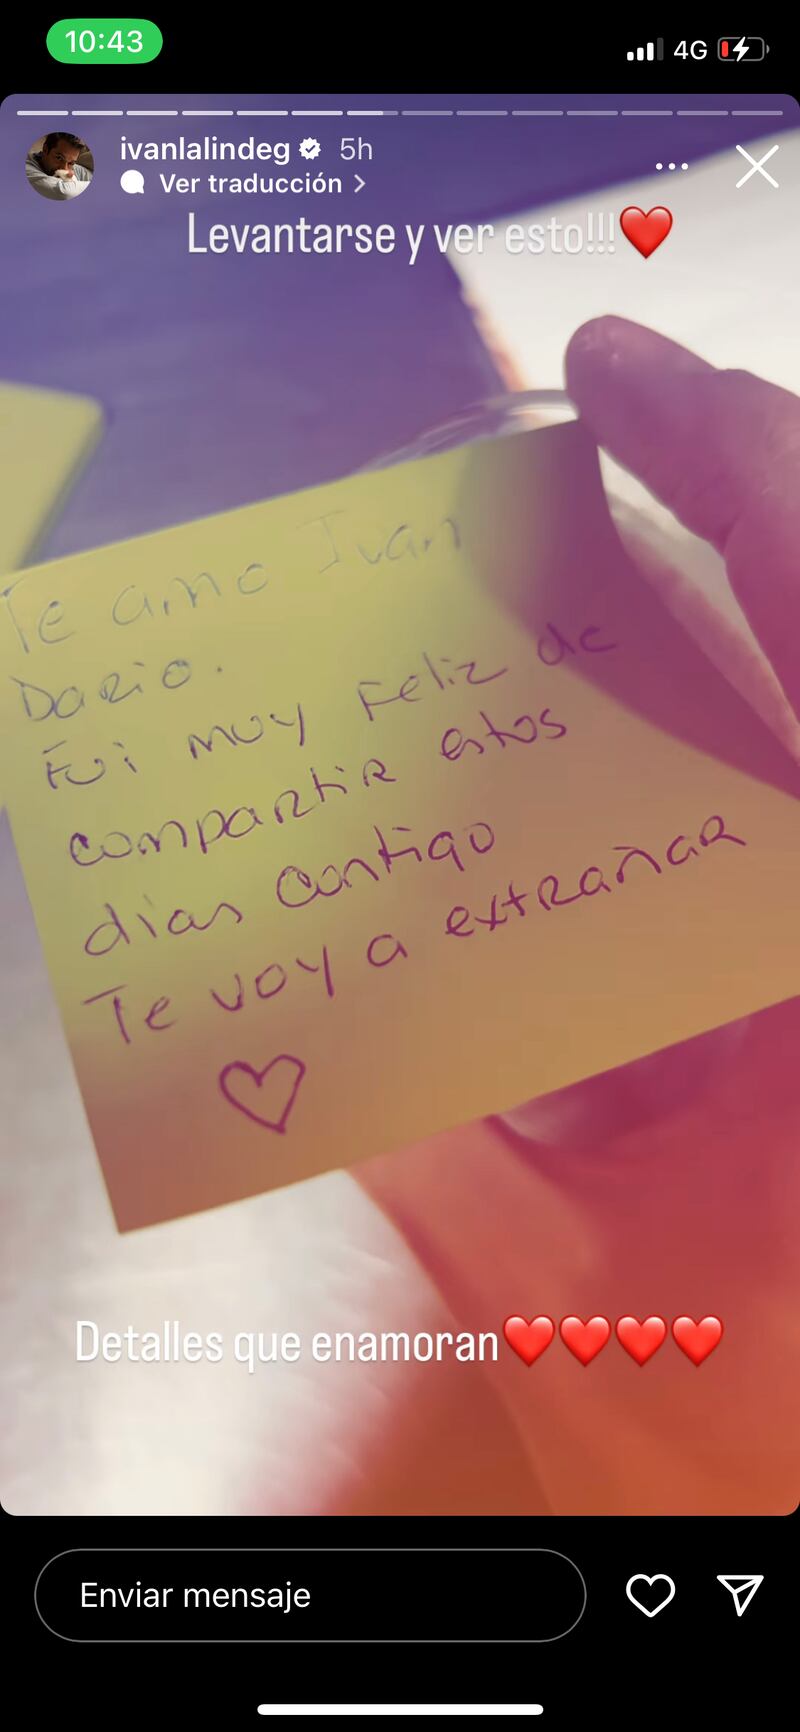 10:43
4G
ivanlalindeg 5h
Ver traducción
Levantarse y ver esto!!!❤️
Te amo Ivan
Dario.
Fui muy Feliz de
compartir estos
dias contigo
Te voy a extrañar
♡
Detalles que enamoran❤️❤️❤️❤️
Enviar mensaje